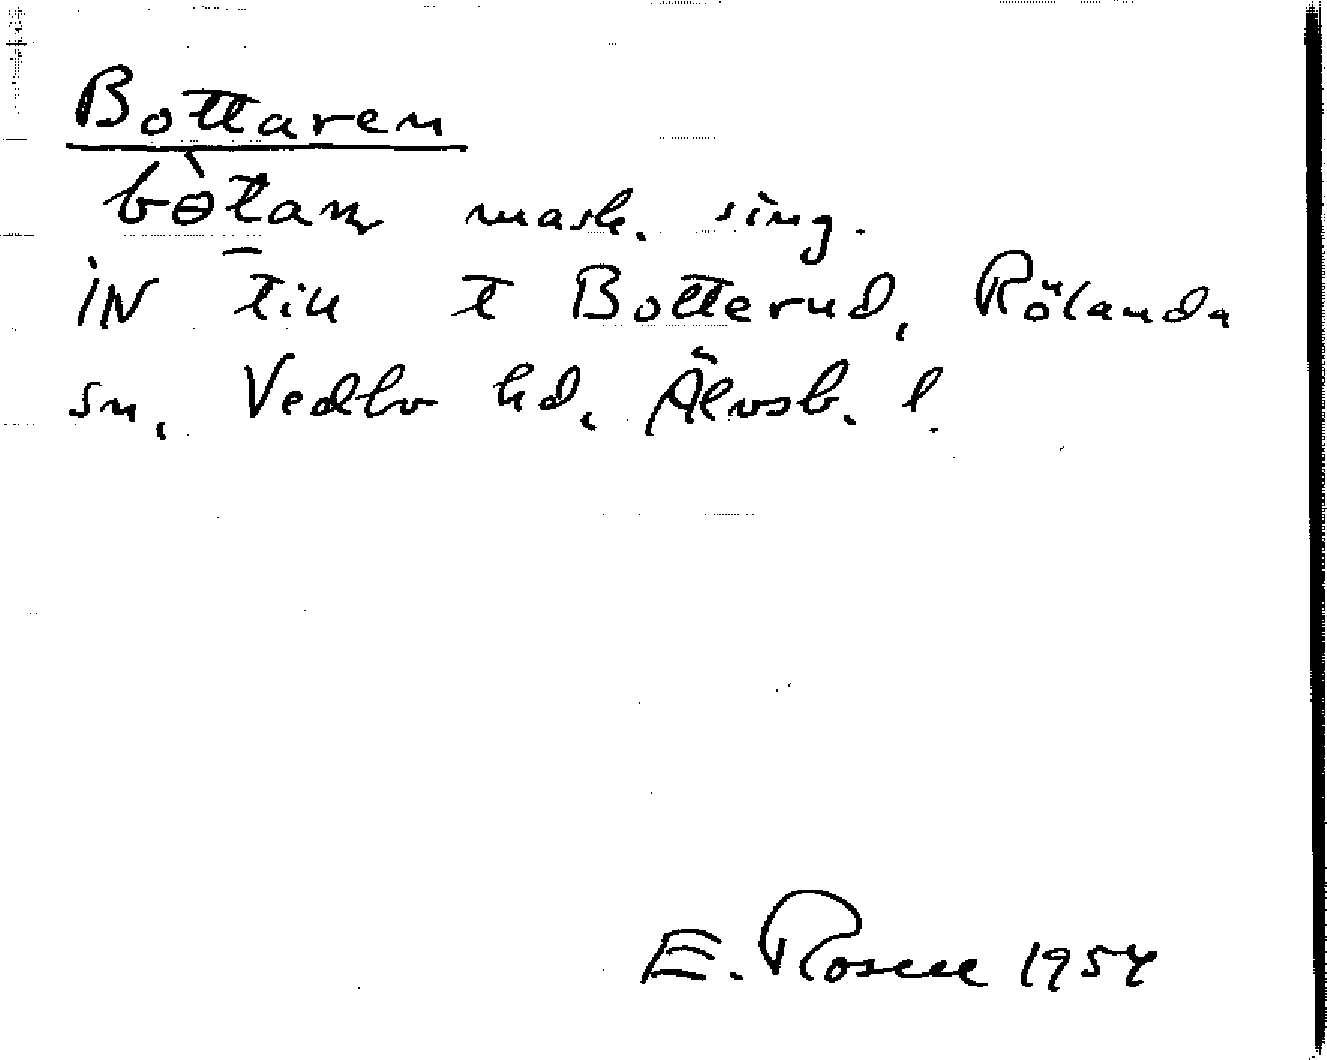 Bottaren
bòtaɳ mask. sing.
iN till t Botterud, Rölanda
sn, Vedbo hd, Älvsb. l.
E. Rosell 1954